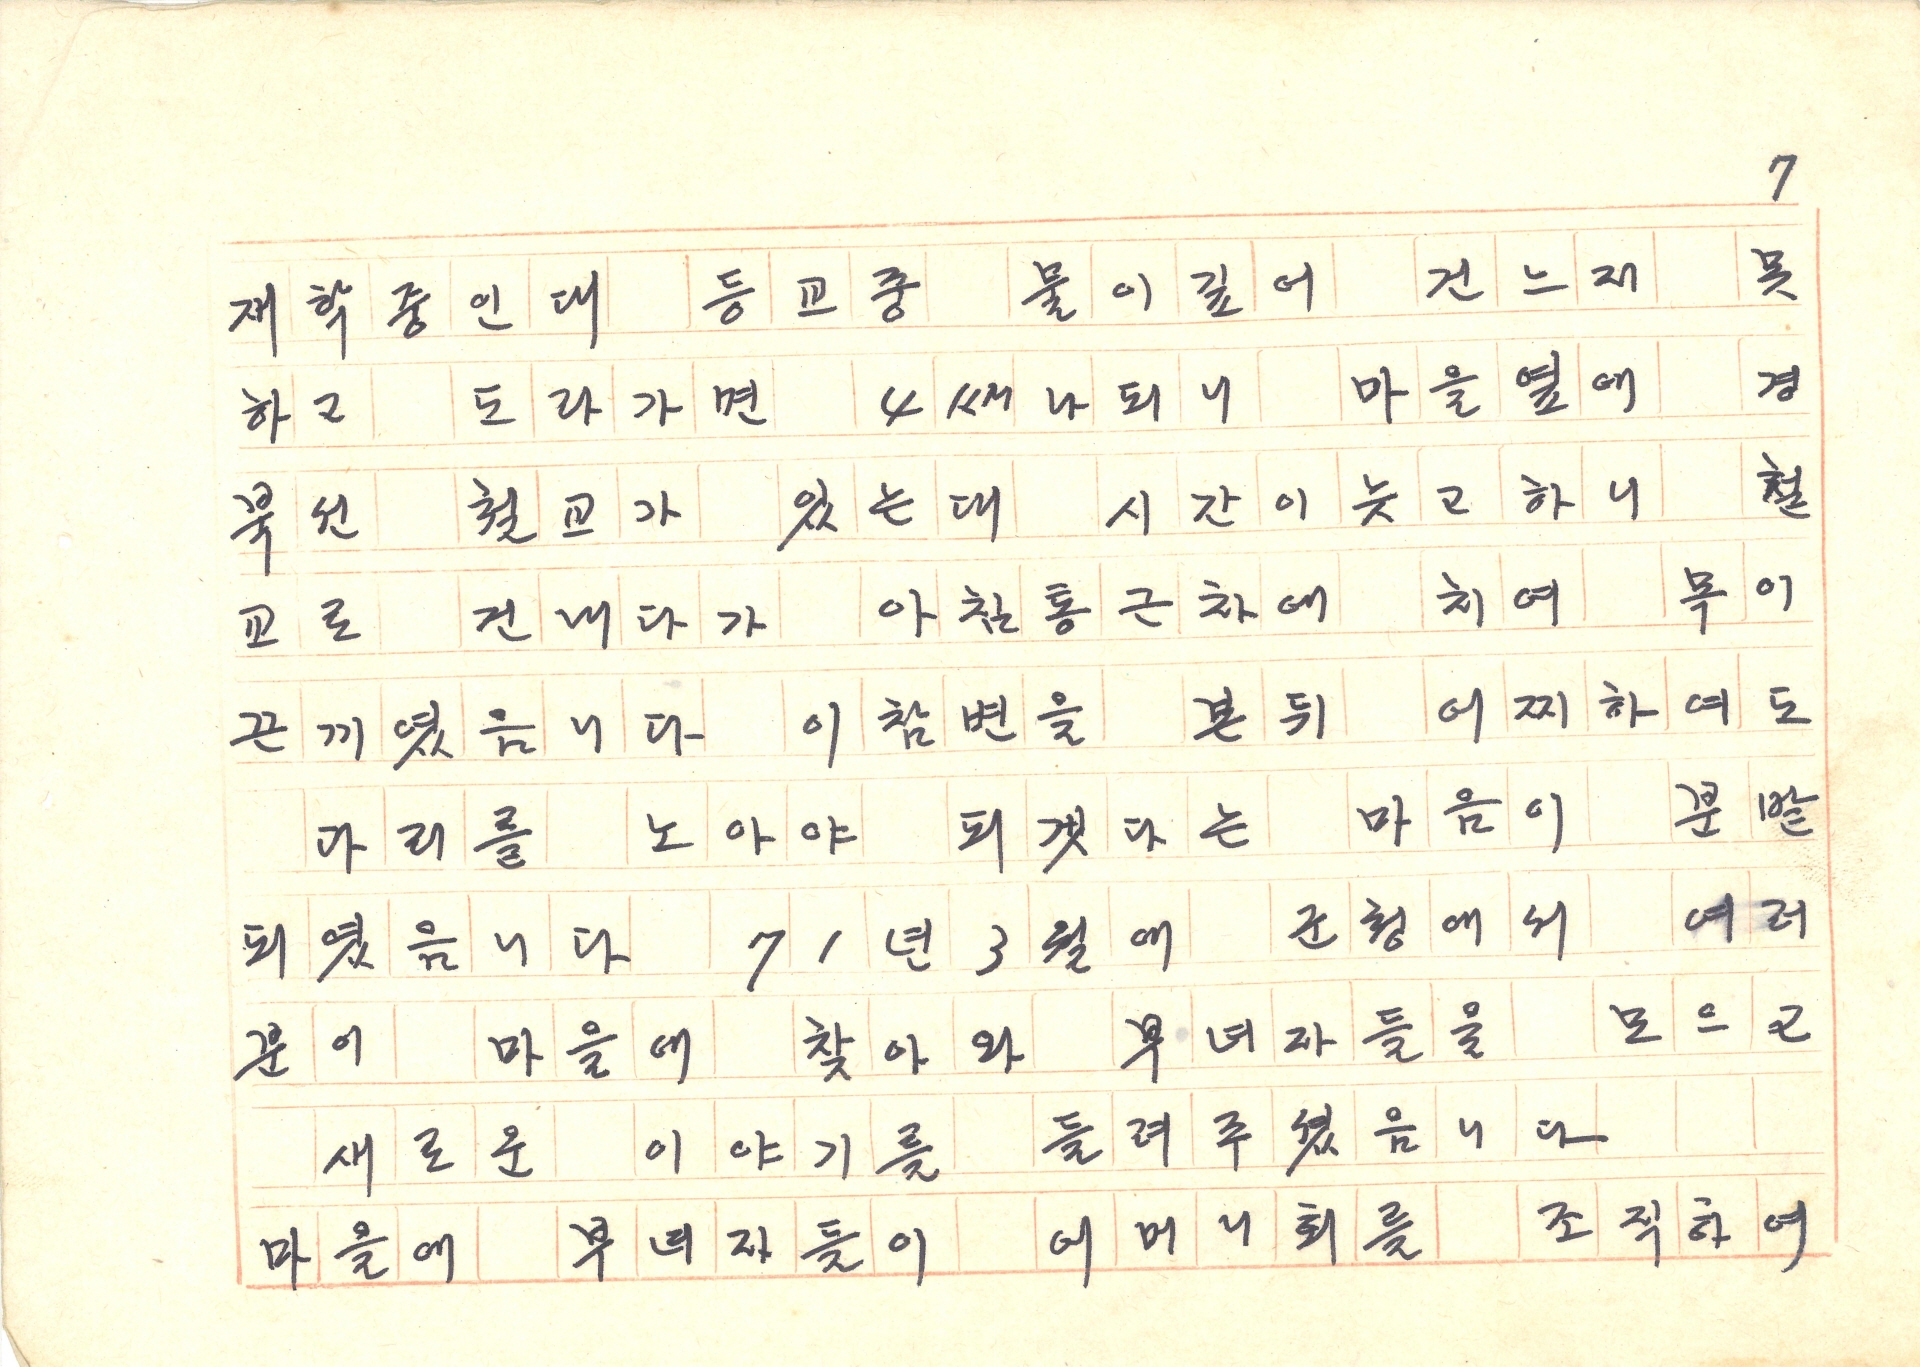 7
재학중인대 등교중 물이깊어 건느재 못
하고 도라가면 4㎞나되니 마을옆에 경
북선 철교가 있는대 시간이늦고하니 철
교로 건내다가 아침통근차에 치여 목이
끈끼였음니다 이참변을 본뒤 어찌하여도
다리를 노아야 되겟다는 마음이 분발
되였음니다 71년3월에 군청에서 여러
분이 마을에 찾아와 부녀자들을 모으고
새로운 이야기를 들려주셨음니다
마을에 부녀자들이 어머니회를 조직하여